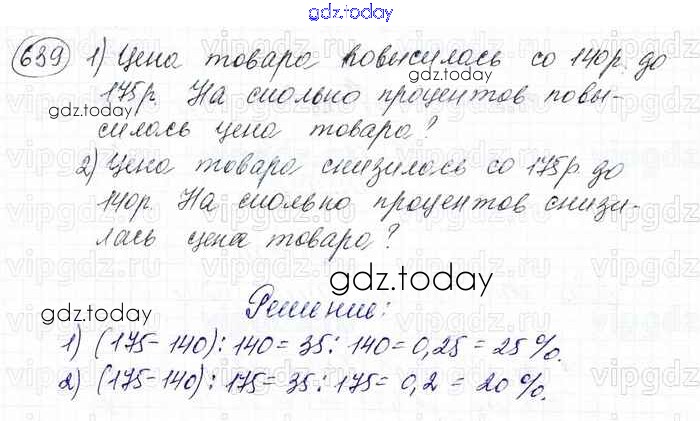 gdz.today
639 1) Цена товара повысилась со 140р. до
gdz.today
175р. На сколько процентов повы-
силась цена товара?
2) Цена товара снизилась со 175р. до
140р. На сколько процентов снизи-
лась цена товара?
gdz.today
gdz.today
Решение:
1) (175-140): 140 = 35: 140 = 0,25 = 25 %.
2) (175-140): 175 = 35: 175 = 0,2 = 20 %.